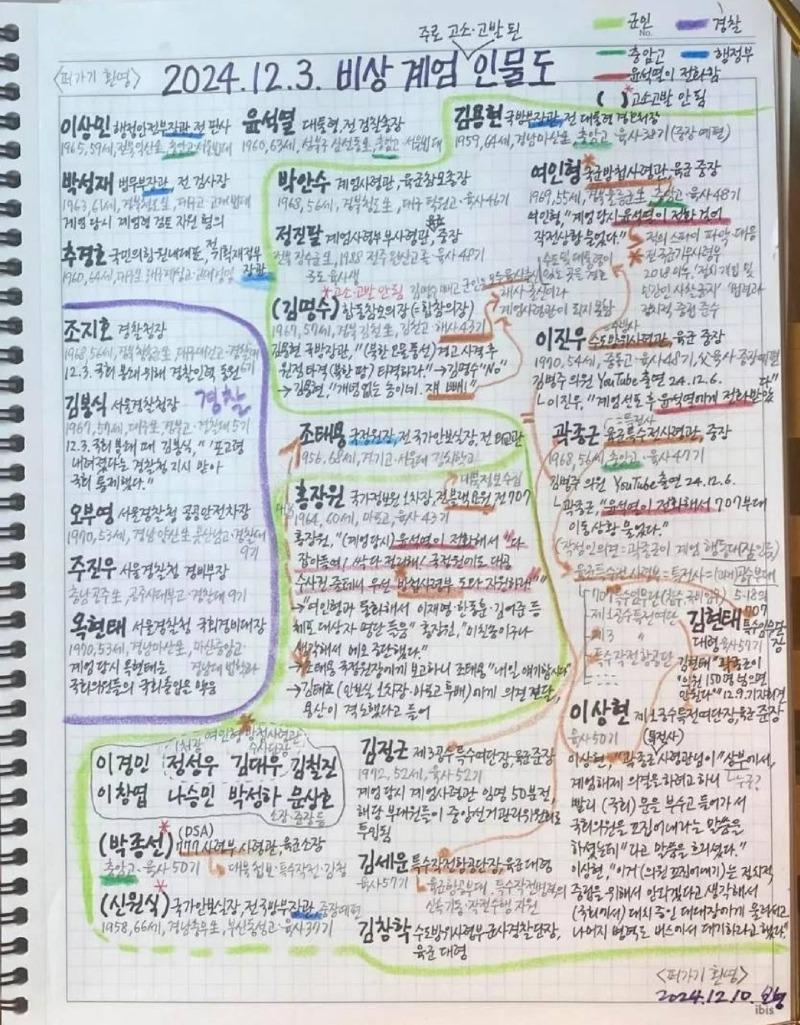 주로 고소·고발 된
〈퍼가기 환영〉 2024.12.3. 비상 계엄 인물도
군인 경찰
충암고 행정부
윤석열이 전화함
( )* 고소고발 안 됨
이상민 행정안전부장관, 전 판사
1965, 59세, 전북익산生, 충암고·서울법대
박성재 법무부장관, 전 검사장
1963, 61세, 경북청도生, 대구고·고려대법대
계엄 당시 계엄령 검토 자원 혐의
추경호 국민의힘 원내대표, 전 기획재정부장관
1960, 64세, 대구生, 대구계성고·고려대경영
윤석열 대통령, 전 검찰총장
1960, 63세, 성북구 삼선동生, 충암고·서울법대
박안수 계엄사령관, 육군참모총장
1968, 56세, 경북청도生, 대구 덕원고·육사46기
정진팔 계엄사령부부사령관, 육군중장
육사48기
*고소·고발 안 됨
(김명수) 합동참모의장(=합참의장)
1967, 57세, 경북 김천生, 김천고 해사43기
김용현 국방부장관, "(북한 오물 풍선) 경고 사격 후
원점 타격(북한 땅) 타격하라." →김명수 "No"
→김용현, "개념없는 놈이네. 쟤 빼!"
해사 출신이라
계엄사령관이 되지 못함
김용현 국방부장관, 전 대통령 경호처장
1959, 64세, 경남마산生, 충암고·육사38기(중장 예편)
여인형 국군방첩사령관, 육군 중장
1969, 55세, 충암고·육사48기
여인형, "계엄 당시 윤석열이 전화 걸어
작전상황 물었다."
이진우 수도방위사령관, 육군 중장
1970, 54세, 중동고·육사48기, 父육사·중장예편
김병주 의원 YouTube 출연 24.12.6.
└이진우, "계엄 선포 후 윤석열에게 전화 받았다"
곽종근 육군특수전사령관, 중장
1968, 56세, 충남고·육사47기
김병주 의원 YouTube 출연 24.12.6.
└곽종근, "윤석열이 전화해서 707부대
이동상황 물었다."
육군특수전사령부=특전사=(과거)공수부대
조지호 경찰청장
1968, 56세, 경북청송生, 대구대건고·경찰대6기
12.3. 국회 봉쇄 위해 경찰인력 동원
김봉식 서울경찰청장 경찰
1967, 57세, 대구生, 경북고·경찰대 5기
12.3. 국회 봉쇄 때 김봉식, "포고령
내려졌다는 경찰청 지시 받아
국회 통제했다."
오부명 서울경찰청 공공안전차장
1970, 53세, 경남 양산生
9기
주진우 서울경찰청 경비부장
충남 공주生, 공주사대부고·경찰대 9기
목현태 서울경찰청 국회경비대장
1970, 53세, 경남마산生, 마산중앙고
계엄 당시 목현태는
국회의원들의 국회출입을 막음
조태용 국정원장, 전 국가안보실장, 전 외교관
1956, 68세, 경기고·서울대 정치학과
홍장원 국가정보원 1차장, 전 블랙요원, 전 707
1964, 60세, 마산고, 육사43기
홍장원, "(계엄 당시) 윤석열이 전화해서 '싹 다
잡아들여! 싹 다 정리해! 국정원에도 대공
수사권 줄테니 우선 방첩사령부 도와 지원해!'"
→"여인형과 통화해서 이재명·한동훈·김어준 등
체포 대상자 명단 들음" 홍장원, "미친놈이구나
생각해서 메모 중단했다."
→조태용 국정원장에게 보고하니 조태용 "내일 얘기합시다"
용산이 경노했다고 들어
이경민 정성우 김대우 김철진
이창엽 나승민 박성하 문상호
소장·중장들
(박종선)* (DSA) 777사령부 사령관, 육군소장
충암고·육사50기
(신원식)* 국가안보실장, 전 국방부장관, 중장예편
1958, 66세, 경남통영生, 부산동성고·육사37기
김정근 제3공수특수여단장, 육군준장
1972, 52세, 육사52기
계엄 당시 계엄사령관 임명 50분 전,
해당 부대원들이 중앙선거관리위원회로
투입됨
김세운 특수작전항공단장, 육군대령
육사57기
김창학 수도방위사령부군사경찰단장,
육군 대령
김현태 707특수임무단장
대령 육사57기
김현태 "곽종근이
'의원 150명 넘으면
안된다'" 12.9. 기자회견
이상현 제1공수특전여단장, 육군 준장
육사50기 (특전사)
이상현, "곽종근 사령관님이 '상부에서,
계엄해제 의결을 하려고 하니 └누구?
빨리 (국회) 문을 부수고 들어가서
국회의원을 끄집어내라'는 말씀을
하셨는데" "라고 말씀을 흐리셨다."
이상현, "이거 (의원 끄집어내기)는 정치적
중립을 위해서 안되겠다고 생각해서
(국회에서) 대치 중인 대대장에게 물러서고
나머지 병력도 버스에서 대기하라고 했다."
〈퍼가기 환영〉
2024.12.10.
ibis